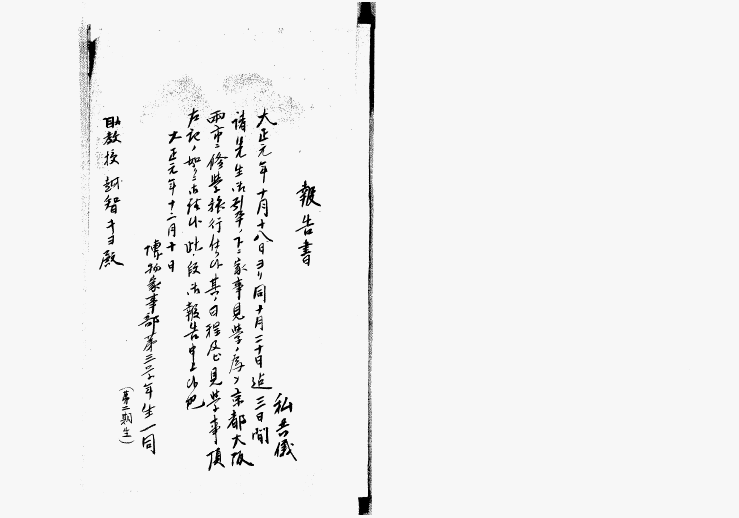 報告書
私共儀
大正元年十月十八日ヨリ同十月二十日迄三日間
諸先生御引率ノ下ニ家事見学ノ為メ京都大阪
両市ニ修学旅行仕候其ノ日程及ビ見学事項
左記ノ如クニ御座候此段御報告申上候也
大正元年十二月十日
博物家事部第三学年生一同
(第二期生)
助教授 越智キヨ殿